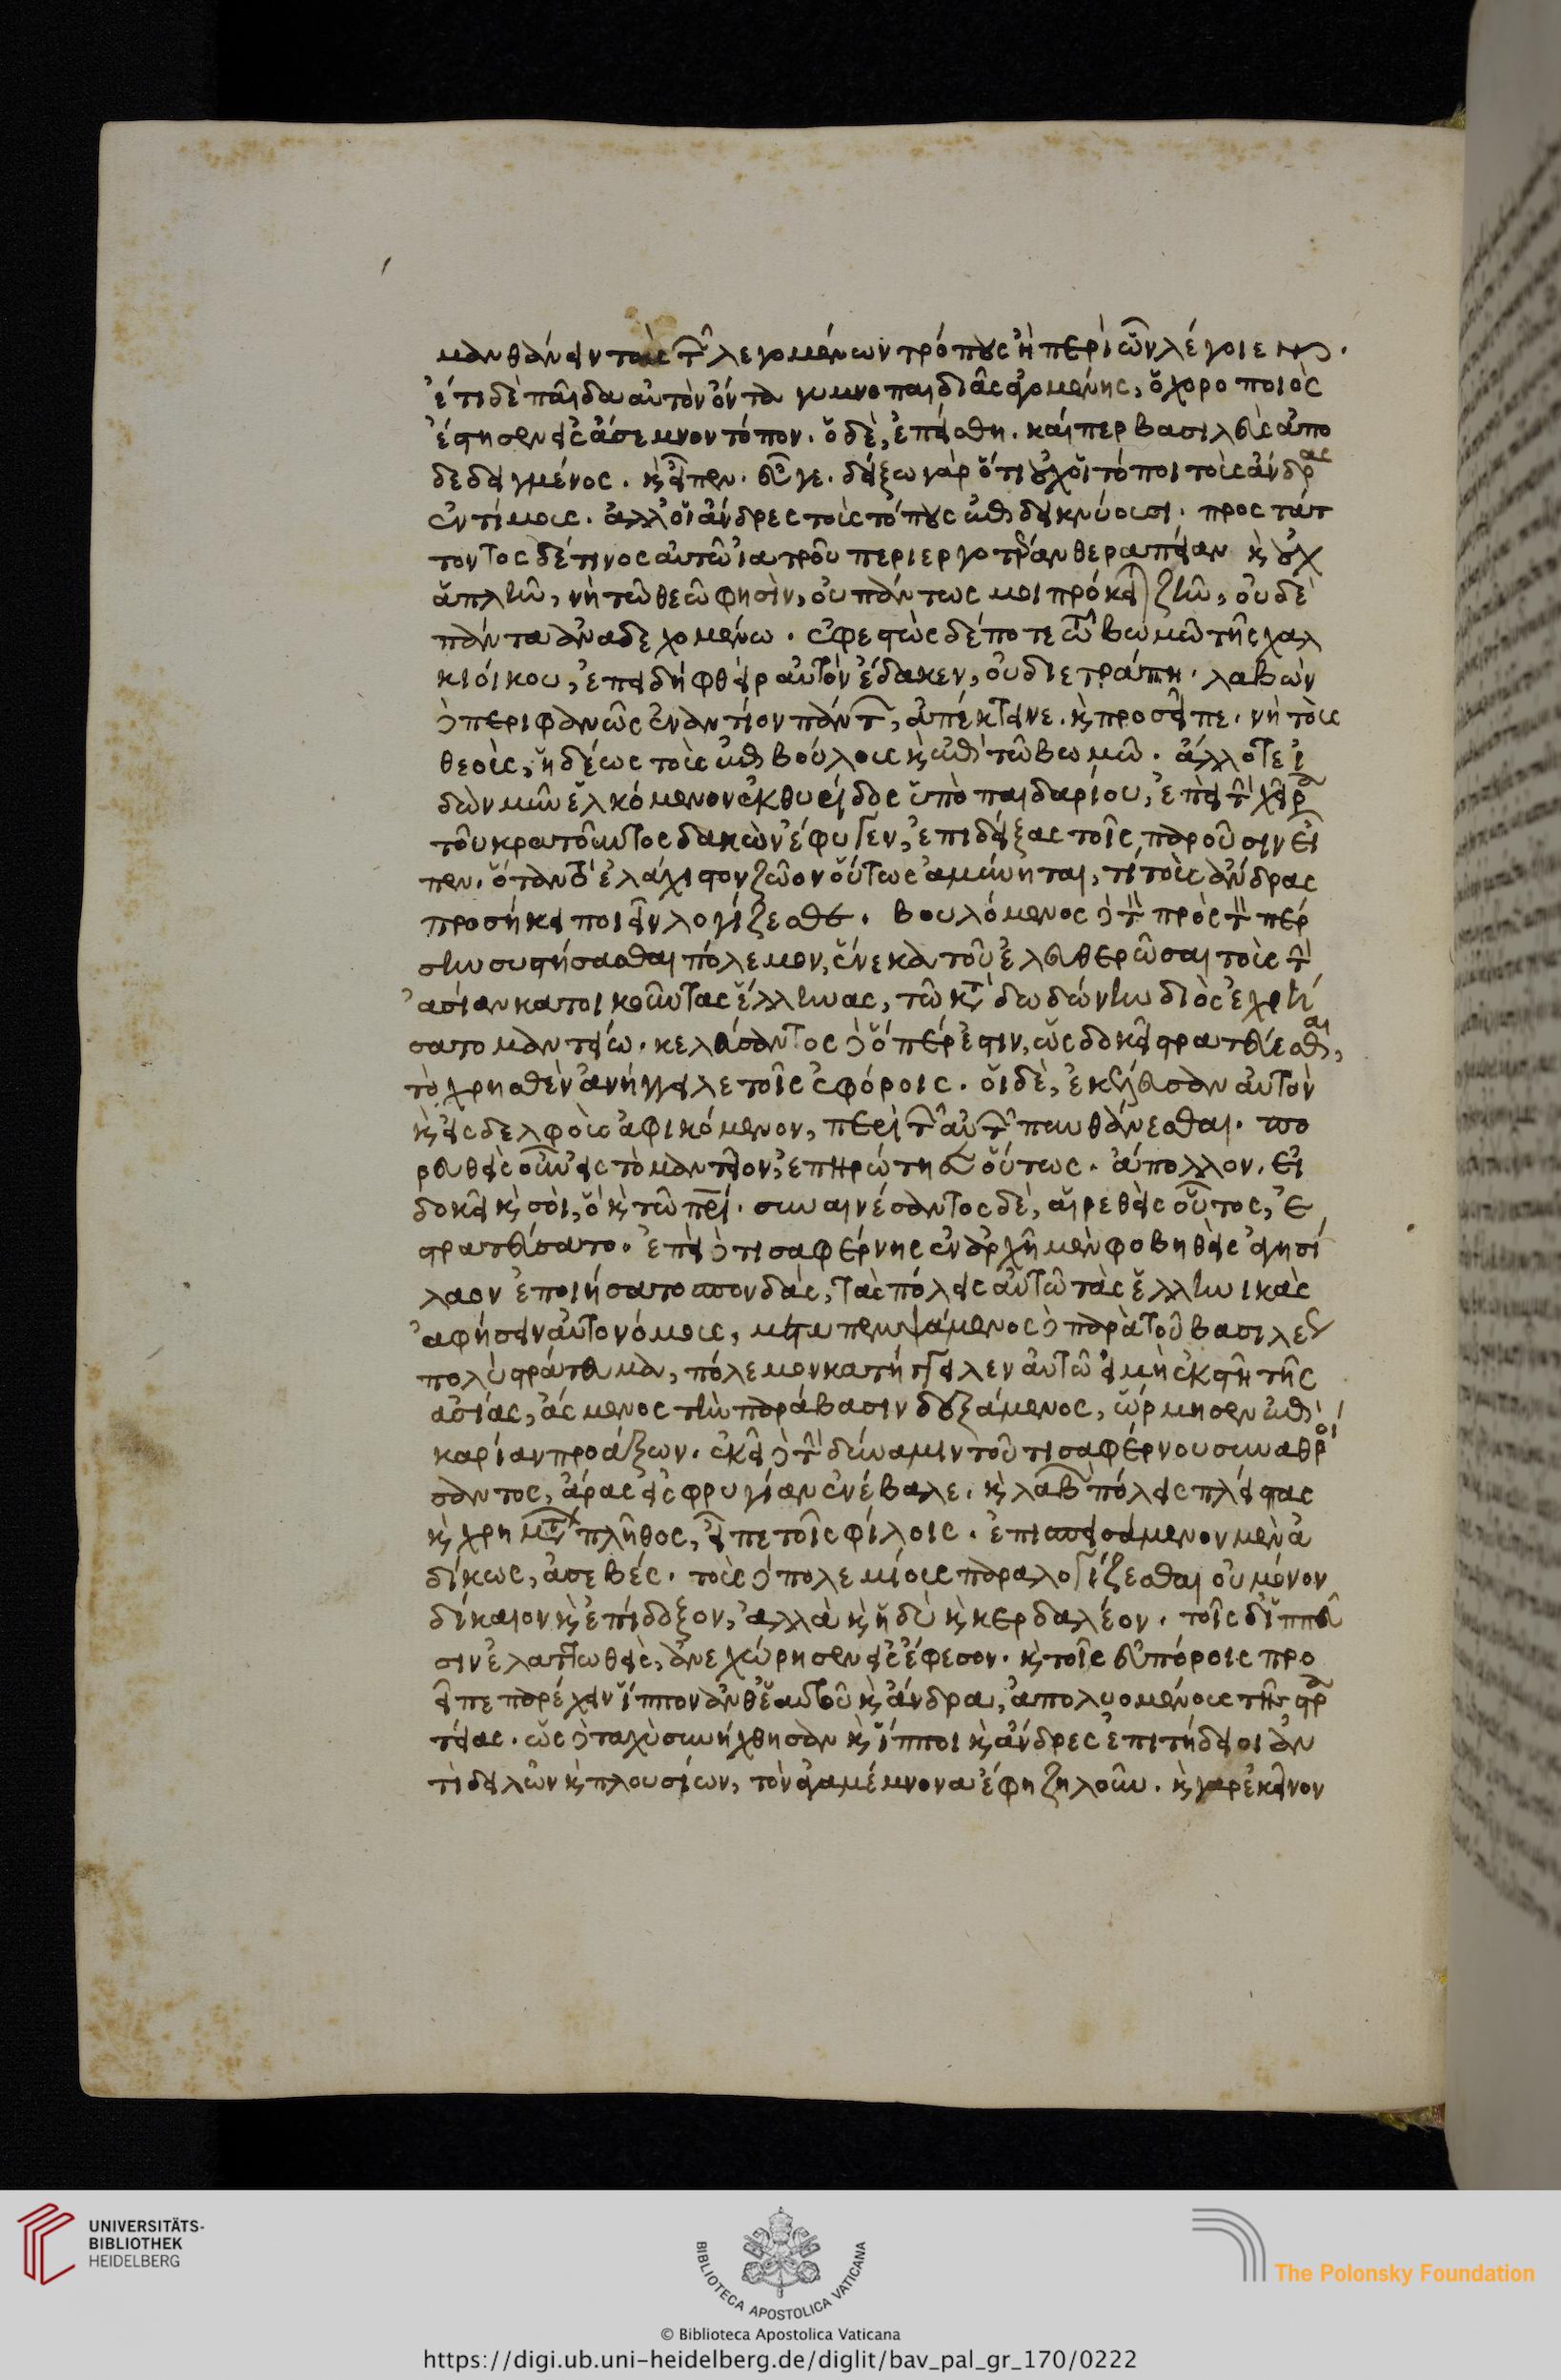 μανθάνειν τοὺς τῶν λεγομένων τρόπους ἢ περὶ ὧν λέγοιεν.
ἔτι δὲ παῖδα αὐτὸν ὄντα γυμνοπαιδιᾶς ἀγομένης, ὁ χοροποιὸς
ἔστησεν εἰς ἄσεμνον τόπον. ὁ δὲ, ἐπείσθη. καίπερ βασιλεὺς ἀπο
δεδειγμένος. καὶ εἶπεν. εὖ γε. δείξω γὰρ ὅτι οὐχ οἱ τόποι τοὺς ἄνδρας
ἐντίμους. ἀλλ' οἱ ἄνδρες τοὺς τόπους ἐπιδεικνύουσι. προς τάτ
τοντος δέ τινος αὐτῶ ἰατροῦ περιεργοτέραν θεραπείαν καὶ οὐχ
ἁπλῆν, νὴ τὼ θεὼ φησὶν, οὐ πάντως μοι πρόκειται ζῆν, οὐδὲ
πάντα ἀναδεχομένω. ἐφεστὼς δέ ποτε τῶ βωμῶ τῆς χαλ
κιοίκου, ἐπειδὴ φθεὶρ αὐτὸν ἔδακεν, οὐ διετράπη. λαβὼν
δὲ περιφανῶς ἐναντίον πάντων, ἀπέκτεινε. καὶ προσεῖπε. νὴ τοὺς
θεοὺς, ἡδέως τοὺς ἐπιβούλους καὶ ἐπὶ τῶ βωμῶ. ἄλλοτε ἰ
δὼν μῦν ἑλκόμενον ἐκ θυρίδος ὑπὸ παιδαρίου, ἐπεὶ τὴν χεῖρα
τοῦ κρατοῦντος δακὼν ἔφυγεν, ἐπιδείξας τοῖς παροῦσιν εἶ
πεν. ὅταν τὸ ἐλάχιστον ζῶον οὕτως ἀμύνηται, τί τοὺς ἄνδρας
προσήκει ποιεῖν λογίζεσθε. βουλόμενος δὲ τὸν πρὸς τὸν πέρ
σην συστήσασθαι πόλεμον, ἕνεκα τοῦ ἐλευθερῶσαι τοὺς τὴν
ἀσίαν κατοικοῦντας ἕλληνας, τῶ κατὰ δωδώνην διὸς ἐχρή
σατο μαντείω. κελεύσαντος δὲ ὅπερ ἐστιν, ὡς δοκεῖ στρατεύεσθαι,
τὸ χρησθὲν ἀνήγγειλε τοῖς ἐφόροις. οἱ δὲ, ἐκέλευσαν αὐτὸν
καὶ εἰς δελφοὺς ἀφικόμενον, περὶ τῶν αὐτῶν πυνθάνεσθαι. πο
ρευθεὶς οὖν εἰς τὸ μαντεῖον, ἐπηρώτησεν οὕτως. ἄπολλον, εἰ
δοκεῖ καὶ σοὶ, ὃ καὶ τῶ πατρί. συναινέσαντος δὲ, αἱρεθεὶς οὗτος, ἐ
στρατεύσατο. ἐπεὶ δὲ τισαφέρνης ἐν ἀρχῆ μὲν φοβηθεὶς ἀγησί
λαον ἐποιήσατο σπονδὰς, τὰς πόλεις αὐτῶ τὰς ἑλληνικὰς
ἀφήσειν αὐτονόμους, μεταπεμψάμενος δὲ παρὰ τοῦ βασιλέως
πολὺ στράτευμα, πόλεμον κατήγγειλεν αὐτῶ εἰ μὴ ἐκστῆ τῆς
ἀσίας, ἄσμενος τὴν παράβασιν δεξάμενος, ὥρμησεν ἐπὶ
καρίαν προάξων. ἐκεῖ δὲ τὴν δύναμιν τοῦ τισαφέρνου συναθροί
σαντος, ἄρας εἰς φρυγίαν ἐνέβαλε. καὶ λαβὼν πόλεις πλείστας
καὶ χρημάτων πλῆθος, εἶπε τοῖς φίλοις. ἐπισπεισάμενον μὲν ἀ
δίκως, ἀσεβές. τοὺς δὲ πολεμίους παραλογίζεσθαι οὐ μόνον
δίκαιον καὶ ἐπίδοξον, ἀλλὰ καὶ ἡδὺ καὶ κερδαλέον. τοῖς δ' ἱππεῦ
σιν ἐλαττωθεὶς, ἀνεχώρησεν εἰς ἔφεσον. καὶ τοῖς εὐπόροις προ
εῖπε παρέχειν ἵππον ἀνθ' ἑαυτοῦ καὶ ἄνδρα, ἀπολυομένους τῆς στρα
τείας. ὡς δὲ ταχὺ συνήχθησαν καὶ ἵπποι καὶ ἄνδρες ἐπιτήδειοι ἀν
τὶ δειλῶν καὶ πλουσίων, τὸν ἀγαμέμνονα ἔφη ζηλοῦν. καὶ γὰρ ἐκεῖνον
UNIVERSITÄTS-
BIBLIOTHEK
HEIDELBERG
BIBLIOTECA APOSTOLICA VATICANA
The Polonsky Foundation
© Biblioteca Apostolica Vaticana
https://digi.ub.uni-heidelberg.de/diglit/bav_pal_gr_170/0222